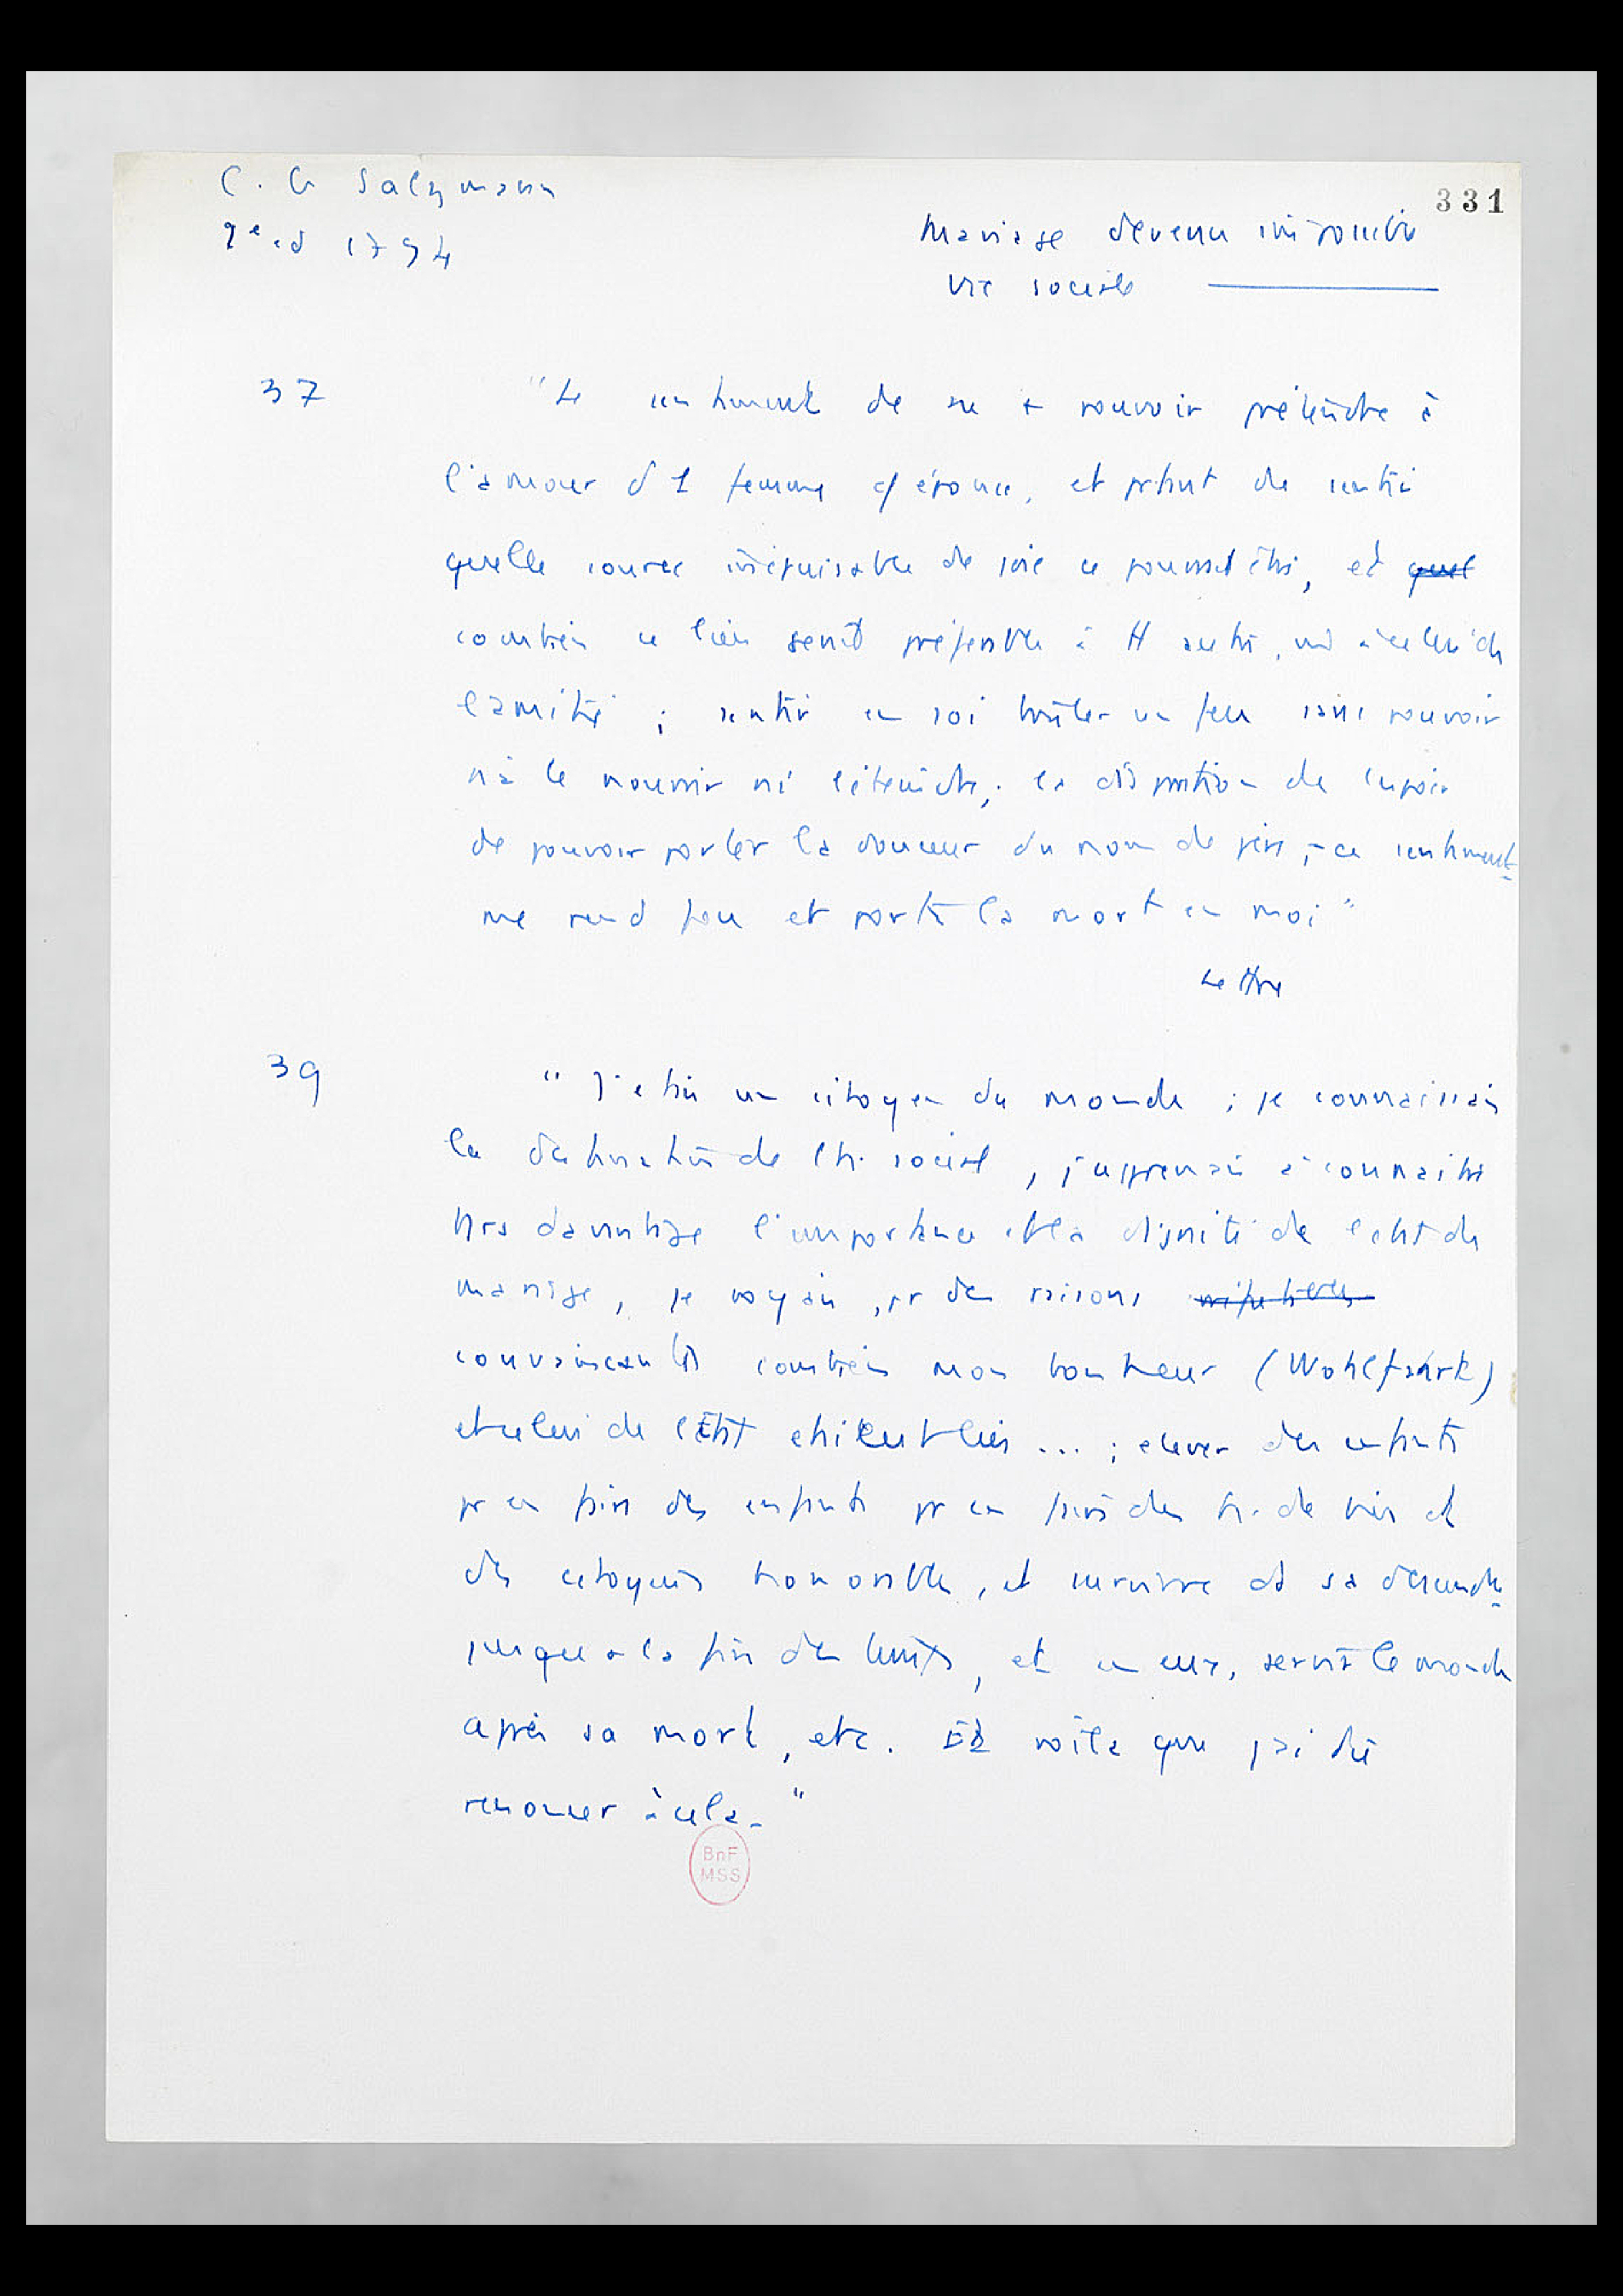 C. G Salzmann
2e ed 1794
331
Mariage devenu impossible
vie sociale
37
"Le sentiment de ne + pouvoir prétendre à
l'amour d 1 femme et épouse, et prtant de sentir
quelle source inépuisable de joie ce pourrait être, et quel
combien ce lien serait préférable à tt autre, mê à celui de
l'amitié ; sentir en soi brûler un feu sans pouvoir
ni le nourrir ni l'éteindre ; la disparition de l'espoir
de pouvoir porter la douceur du nom de père, - ce sentiment
me rend fou et porte la mort en moi"
Lettre
39
"J'étais un citoyen du monde ; je connaissais
la destination de l'h. social, j'apprenais à connaître
tjrs davantage l'importance et la dignité de l'état de
mariage, je voyais, pr des raisons
convaincantes combien mon bonheur (Wohlfahrt)
et celui de l'État étaient liés ... ; élever des enfants
pr en faire des enfants pr en faire des h. de bien et
des citoyens honorables, et survivre ds sa descendce
jusqu'à la fin des temps, et en eux, servir le monde
après sa mort, etc. Et voilà que j'ai dû
renoncer à cela."
BnF
MSS